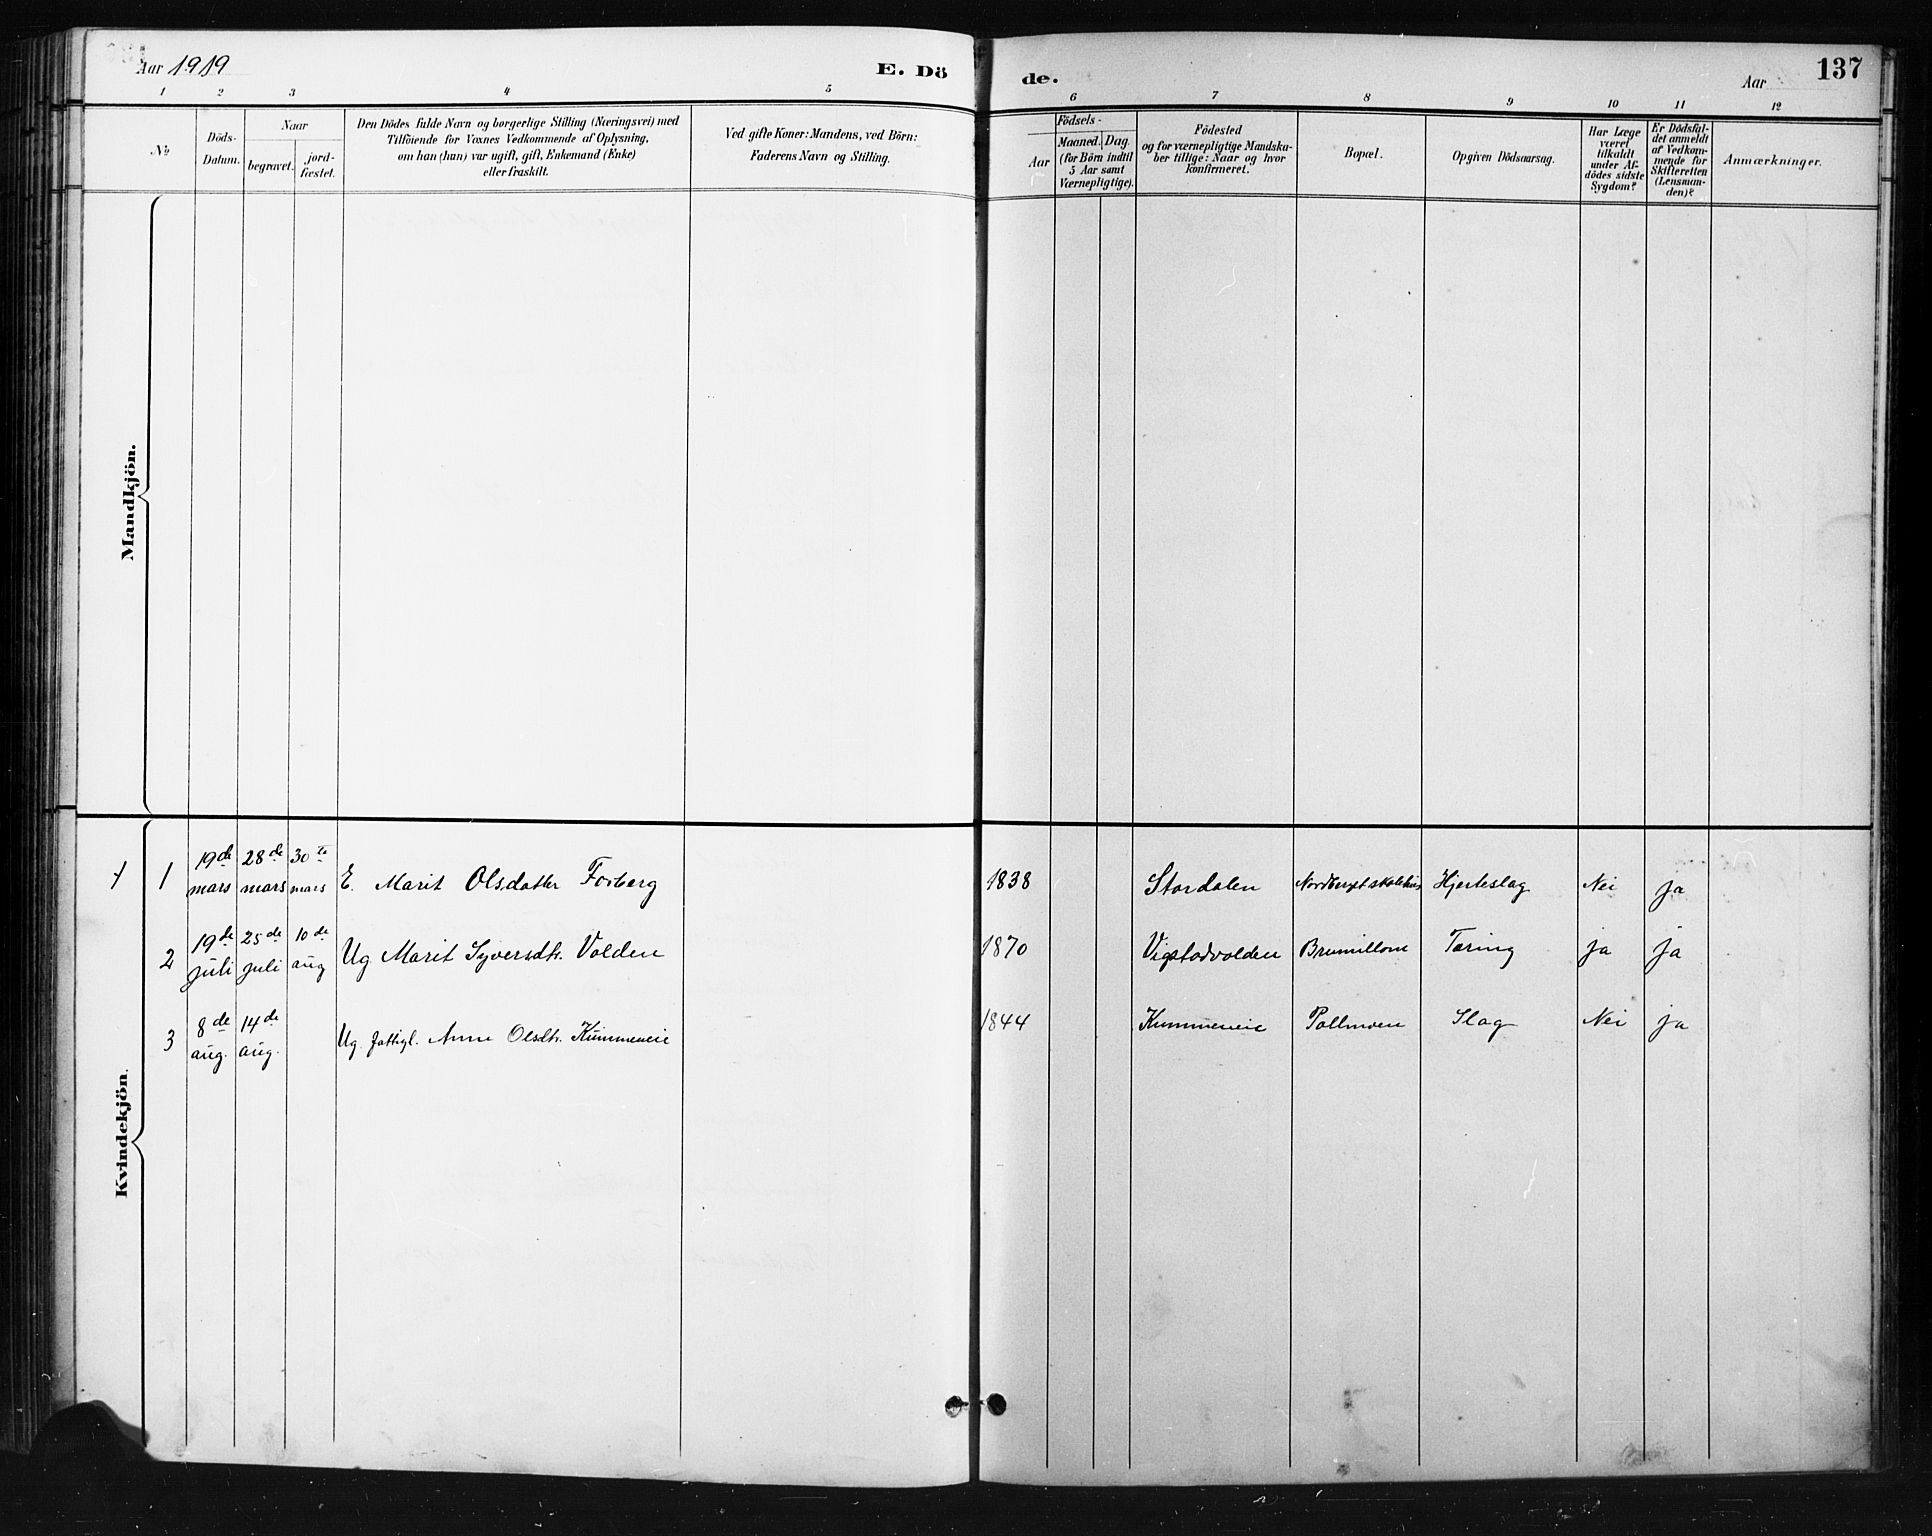 Aar 1919
E. Dö
de.
Aar
137
1 2 3 4 5 6 7 8 9 10 11 12
No
Döds-
Datum.
Naar
begravet.
jord-
fæstet.
Den Dödes fulde Navn og borgerlige Stilling (Næringsvei) med
Tilföiende for Voxnes Vedkommende af Oplysning,
om han (hun) var ugift, gift, Enkemand (Enke)
eller fraskilt.
Ved gifte Koner: Mandens, ved Börn:
Faderens Navn og Stilling.
Födsels-
Aar
Maaned.
Dag.
(for Börn indtil
5 Aar samt
Værnepligtige).
Födested
og for værnepligtige Mandska-
ber tillige: Naar og hvor
konfirmeret.
Bopæl.
Opgiven Dödsaarsag.
Har Læge
været
tilkaldt
under Af-
dödes sidste
Sygdom?
Er Dödsfal-
det anmeldt
af Vedkom-
mende for
Skifteretten
(Lensman-
den)?
Anmærkninger.
Mandkjön.
Kvindekjön.
1 19de mars 28de mars 30te mars E. Marit Olsdatter Forberg 1838 Stordalen Hjerteslag Nei ja
2 19de juli 25de juli 10de aug Ug Marit Syversdtr. Volden 1870 Vigstadvolden Brumillom Tæring ja ja
3 8de aug. 14de aug. Ug. fattigl. Anne Olsdtr. Kummeneie 1844 Kummeneie Pollmoen Slag Nei ja